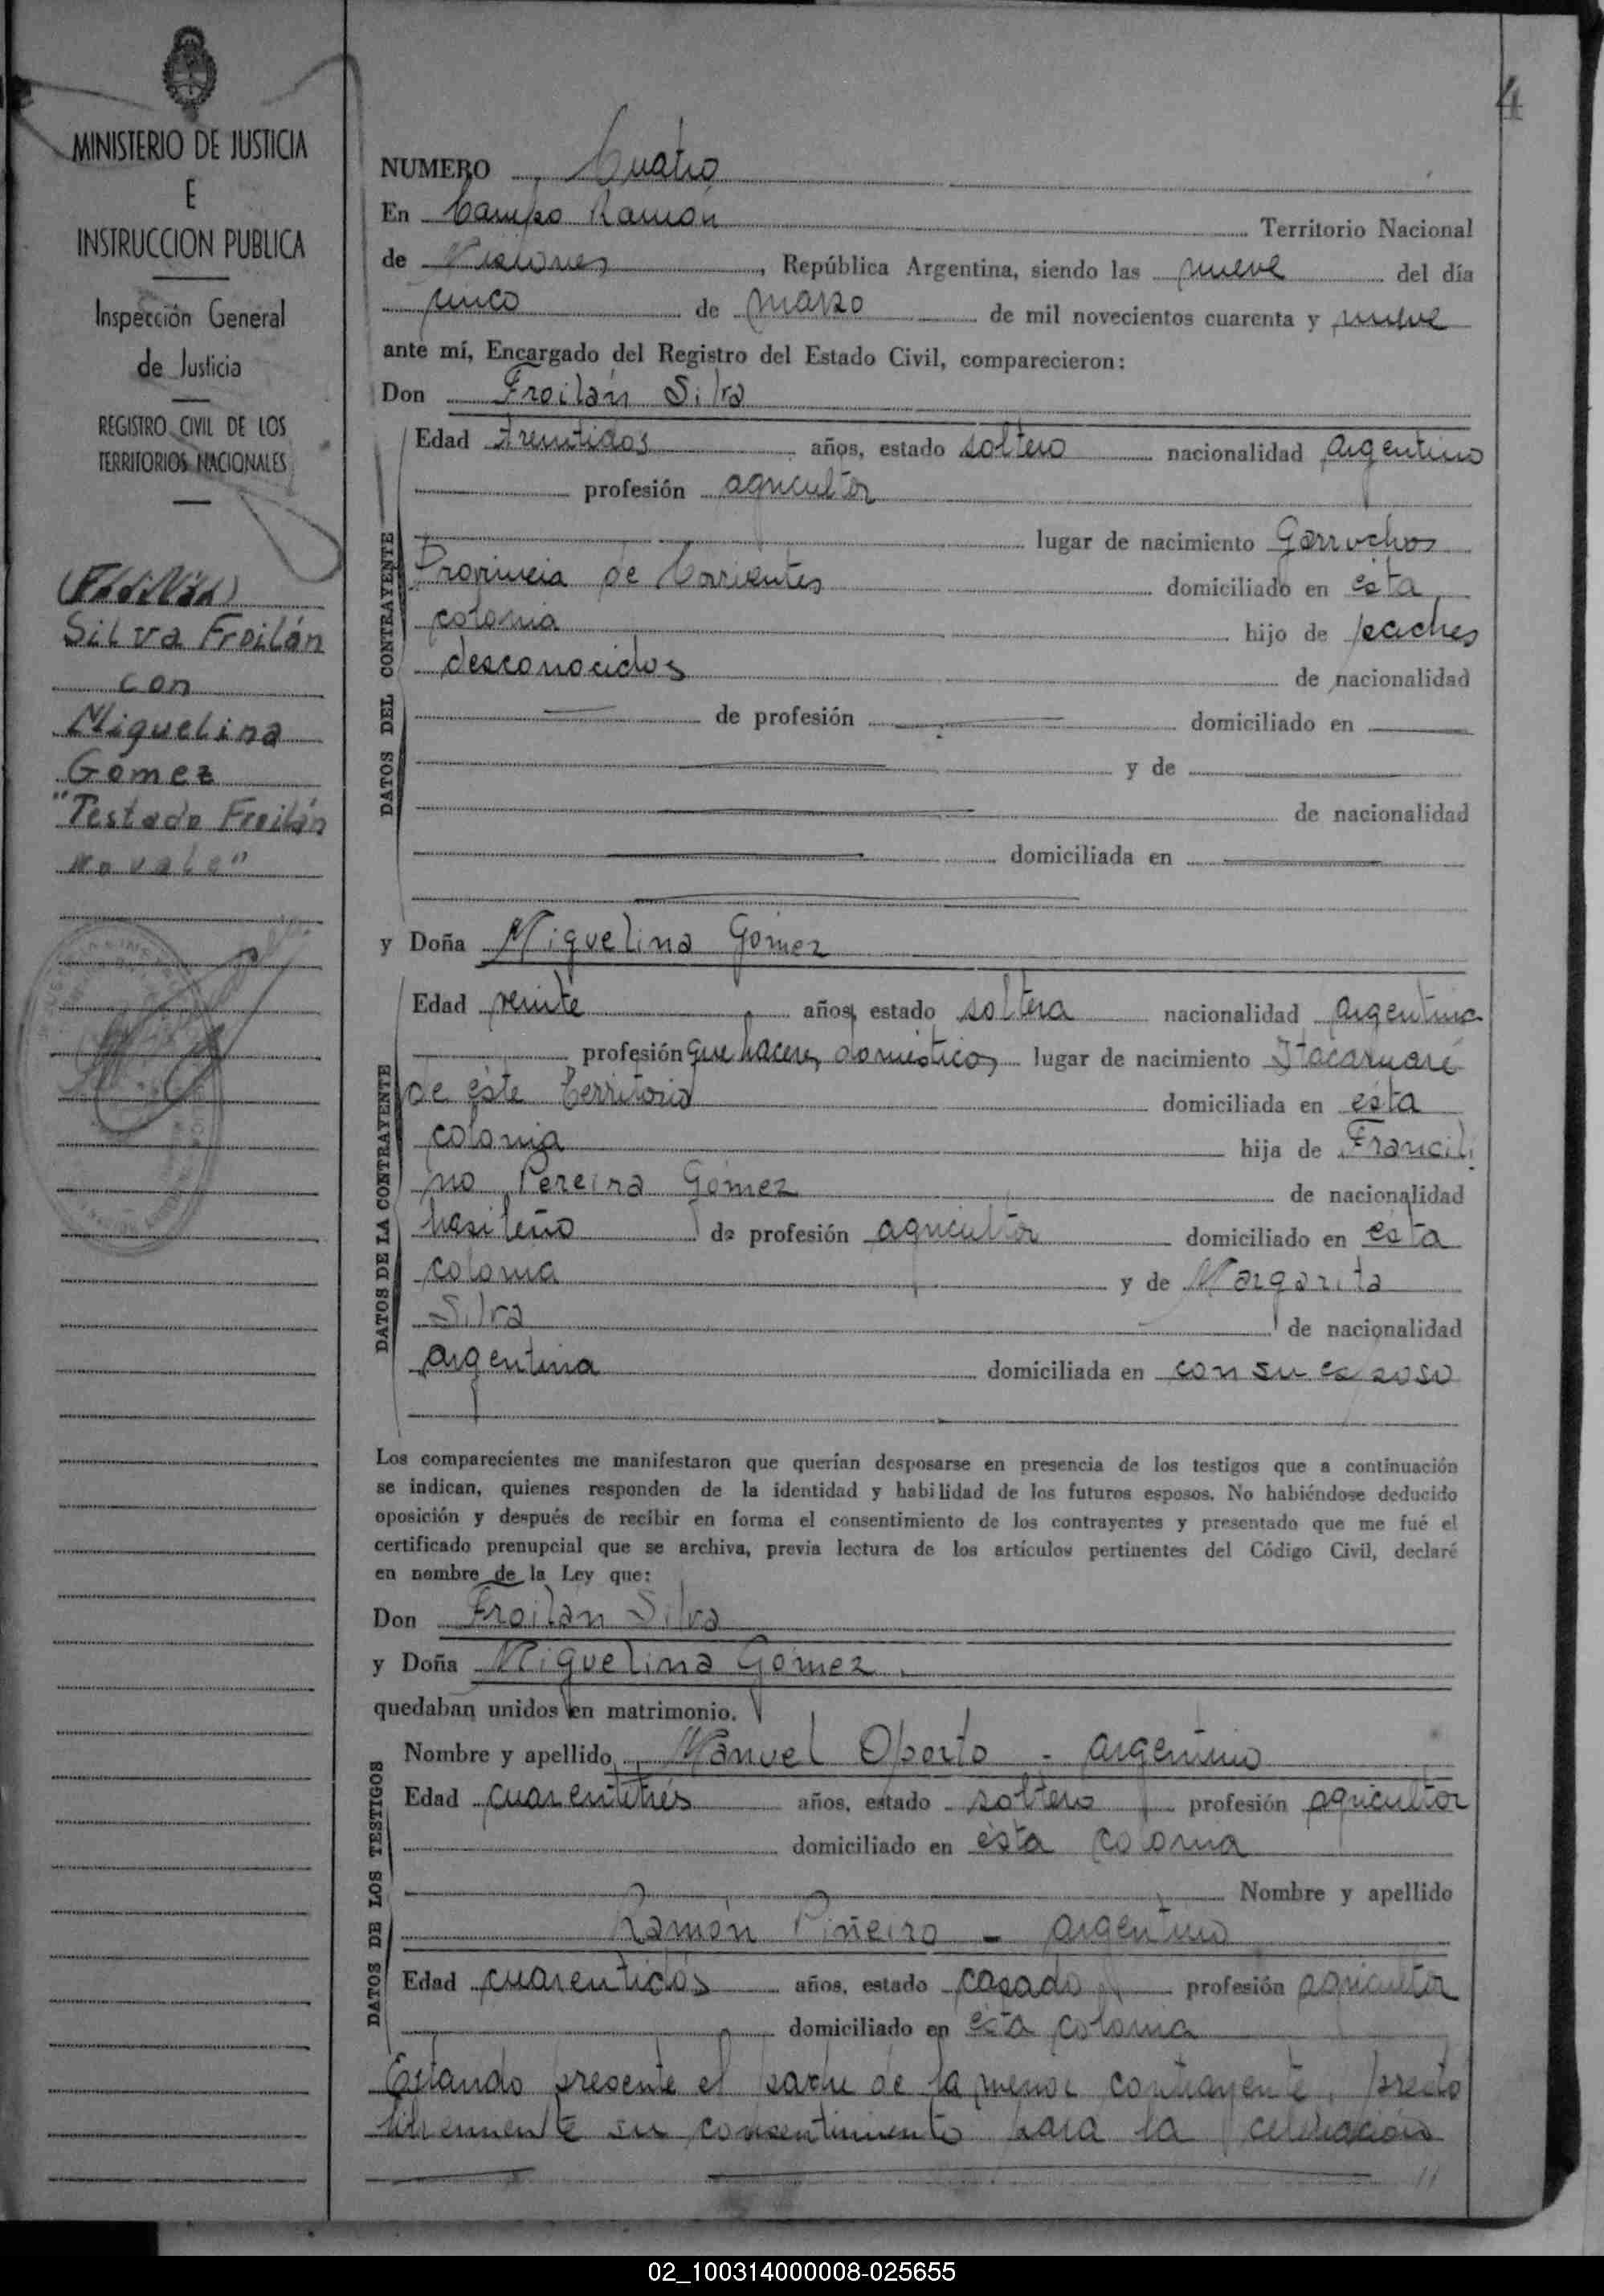 4
MINISTERIO DE JUSTICIA
E
INSTRUCCION PUBLICA
Inspección General
de Justicia
REGISTRO CIVIL DE LOS
TERRITORIOS NACIONALES
Silva Froilán
con
Miguelina
Gomez
"Testado Froilán
no vale"
NUMERO Cuatro
En Campo Ramón Territorio Nacional
de Misiones, República Argentina, siendo las nueve del día
cinco de marzo de mil novecientos cuarenta y nueve
ante mí, Encargado del Registro del Estado Civil, comparecieron:
Don Froilán Silva
DATOS DEL CONTRAYENTE
Edad treintidos años, estado soltero nacionalidad argentino
profesión agricultor
lugar de nacimiento Garruchos
Provincia de Corrientes domiciliado en ésta
colonia hijo de padres
desconocidos de nacionalidad
de profesión domiciliado en
y de
de nacionalidad
domiciliada en
y Doña Miguelina Gómez
DATOS DE LA CONTRAYENTE
Edad veinte años, estado soltera nacionalidad argentina
profesión quehaceres domésticos lugar de nacimiento Itacaruaré
de éste Territorio domiciliada en ésta
colonia hija de Francili
no Pereira Gómez de nacionalidad
brasileño de profesión agricultor domiciliado en ésta
colonia y de Margarita
Silva de nacionalidad
argentina domiciliada en con su esposo
Los comparecientes me manifestaron que querían desposarse en presencia de los testigos que a continuación
se indican, quienes responden de la identidad y habilidad de los futuros esposos. No habiéndose deducido
oposición y después de recibir en forma el consentimiento de los contrayentes y presentado que me fué el
certificado prenupcial que se archiva, previa lectura de los artículos pertinentes del Código Civil, declaré
en nombre de la Ley que:
Don Froilán Silva
y Doña Miguelina Gómez.
quedaban unidos en matrimonio.
DATOS DE LOS TESTIGOS
Nombre y apellido Manuel Oporto - argentino
Edad cuarentitrés años, estado soltero profesión agricultor
domiciliado en ésta colonia
Nombre y apellido
Ramón Piñeiro - argentino
Edad cuarentidós años, estado casado profesión agricultor
domiciliado en ésta colonia
Estando presente el padre de la menor contrayente, prestó
libremente su consentimiento para la celebración
02_100314000008-025655